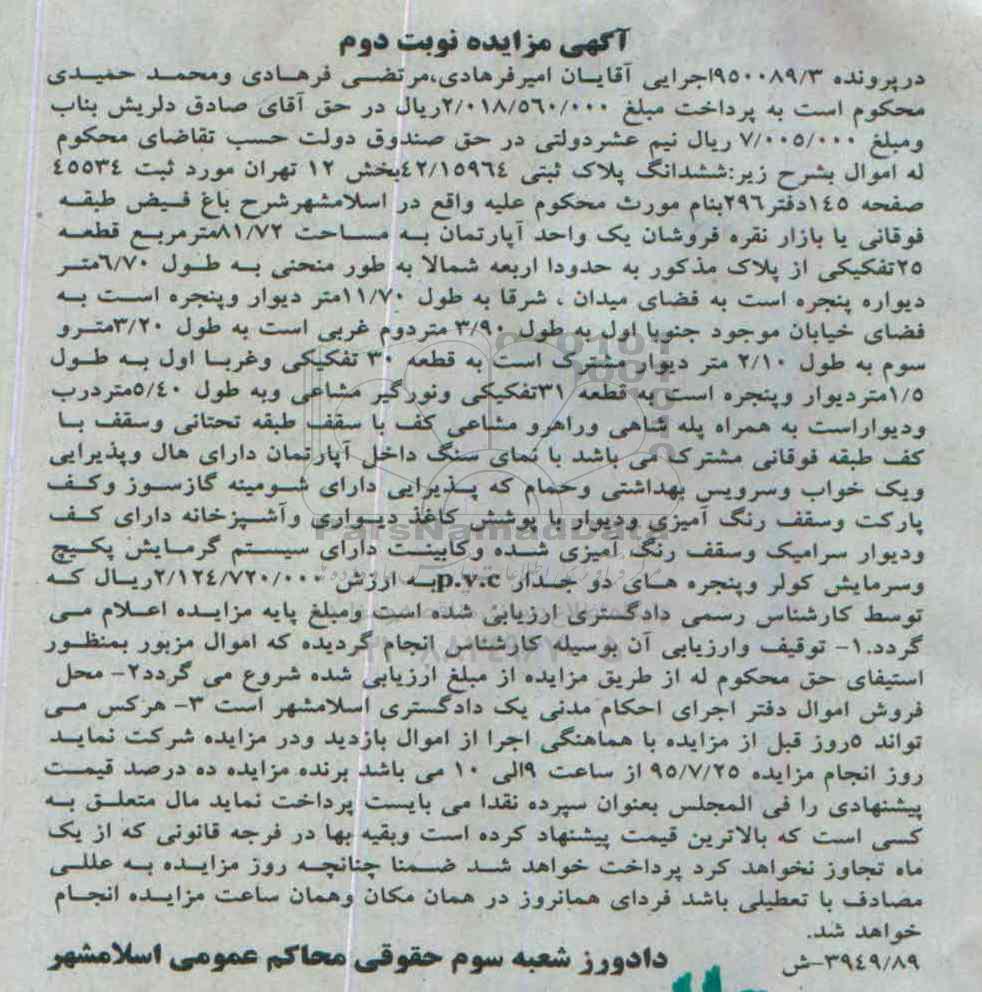 آگهی مزایده نوبت دوم
درپرونده ۹۵۰۰۸۹/۳اجرایی آقایان امیرفرهادی،مرتضی فرهادی ومحمد حمیدی
محکوم است به پرداخت مبلغ ۲/۰۱۸/۵۶۰/۰۰۰ریال در حق آقای صادق دلریش بناب
ومبلغ ۷/۰۰۵/۰۰۰ ریال نیم عشردولتی در حق صندوق دولت حسب تقاضای محکوم
له اموال بشرح زیر:ششدانگ پلاک ثبتی ۴۲/۱۵۹۶۴بخش ۱۲ تهران مورد ثبت ۴۵۵۳۴
صفحه ۱۴۵دفتر۲۹۶بنام مورث محکوم علیه واقع در اسلامشهرشرح باغ فیض طبقه
فوقانی یا بازار نقره فروشان یک واحد آپارتمان به مساحت ۸۱/۷۲مترمربع قطعه
۲۵تفکیکی از پلاک مذکور به حدودا اربعه شمالا به طور منحنی به طول ۶/۷۰متر
دیواره پنجره است به فضای میدان ، شرقا به طول ۱۱/۷۰متر دیوار وپنجره است به
فضای خیابان موجود جنوبا اول به طول ۳/۹۰ متردوم غربی است به طول ۳/۲۰مترو
سوم به طول ۲/۱۰ متر دیوار مشترک است به قطعه ۳۰ تفکیکی وغربا اول به طول
۱/۵متردیوار وپنجره است به قطعه ۳۱تفکیکی ونورگیر مشاعی وبه طول ۵/۴۰متردرب
ودیواراست به همراه پله شاهی وراهرو مشاعی کف با سقف طبقه تحتانی وسقف با
کف طبقه فوقانی مشترک می باشد با نمای سنگ داخل آپارتمان دارای هال وپذیرایی
ویک خواب وسرویس بهداشتی وحمام که پذیرایی دارای شومینه گازسوز وکف
پارکت وسقف رنگ آمیزی ودیوار با پوشش کاغذ دیواری وآشپزخانه دارای کف
ودیوار سرامیک وسقف رنگ امیزی شده وکابینت دارای سیستم گرمایش پکیج
وسرمایش کولر وپنجره های دو جدار p.v.cبه ارزش ۲/۱۲۴/۷۲۰/۰۰۰ریال که
توسط کارشناس رسمی دادگستری ارزیابی شده است ومبلغ پایه مزایده اعلام می
گردد.۱- توقیف وارزیابی آن بوسیله کارشناس انجام گردیده که اموال مزبور بمنظور
استیفای حق محکوم له از طریق مزایده از مبلغ ارزیابی شده شروع می گردد۲- محل
فروش اموال دفتر اجرای احکام مدنی یک دادگستری اسلامشهر است ۳- هرکس می
تواند ۵روز قبل از مزایده با هماهنگی اجرا از اموال بازدید ودر مزایده شرکت نماید
روز انجام مزایده ۹۵/۷/۲۵ از ساعت ۹الی ۱۰ می باشد برنده مزایده ده درصد قیمت
پیشنهادی را فی المجلس بعنوان سپرده نقدا می بایست پرداخت نماید مال متعلق به
کسی است که بالاترین قیمت پیشنهاد کرده است وبقیه بها در فرجه قانونی که از یک
ماه تجاوز نخواهد کرد پرداخت خواهد شد ضمنا چنانچه روز مزایده به عللی
مصادف با تعطیلی باشد فردای همانروز در همان مکان وهمان ساعت مزایده انجام
خواهد شد.
۳۹۴۹/۸۹-ش دادورز شعبه سوم حقوقی محاکم عمومی اسلامشهر
ParsNamadData